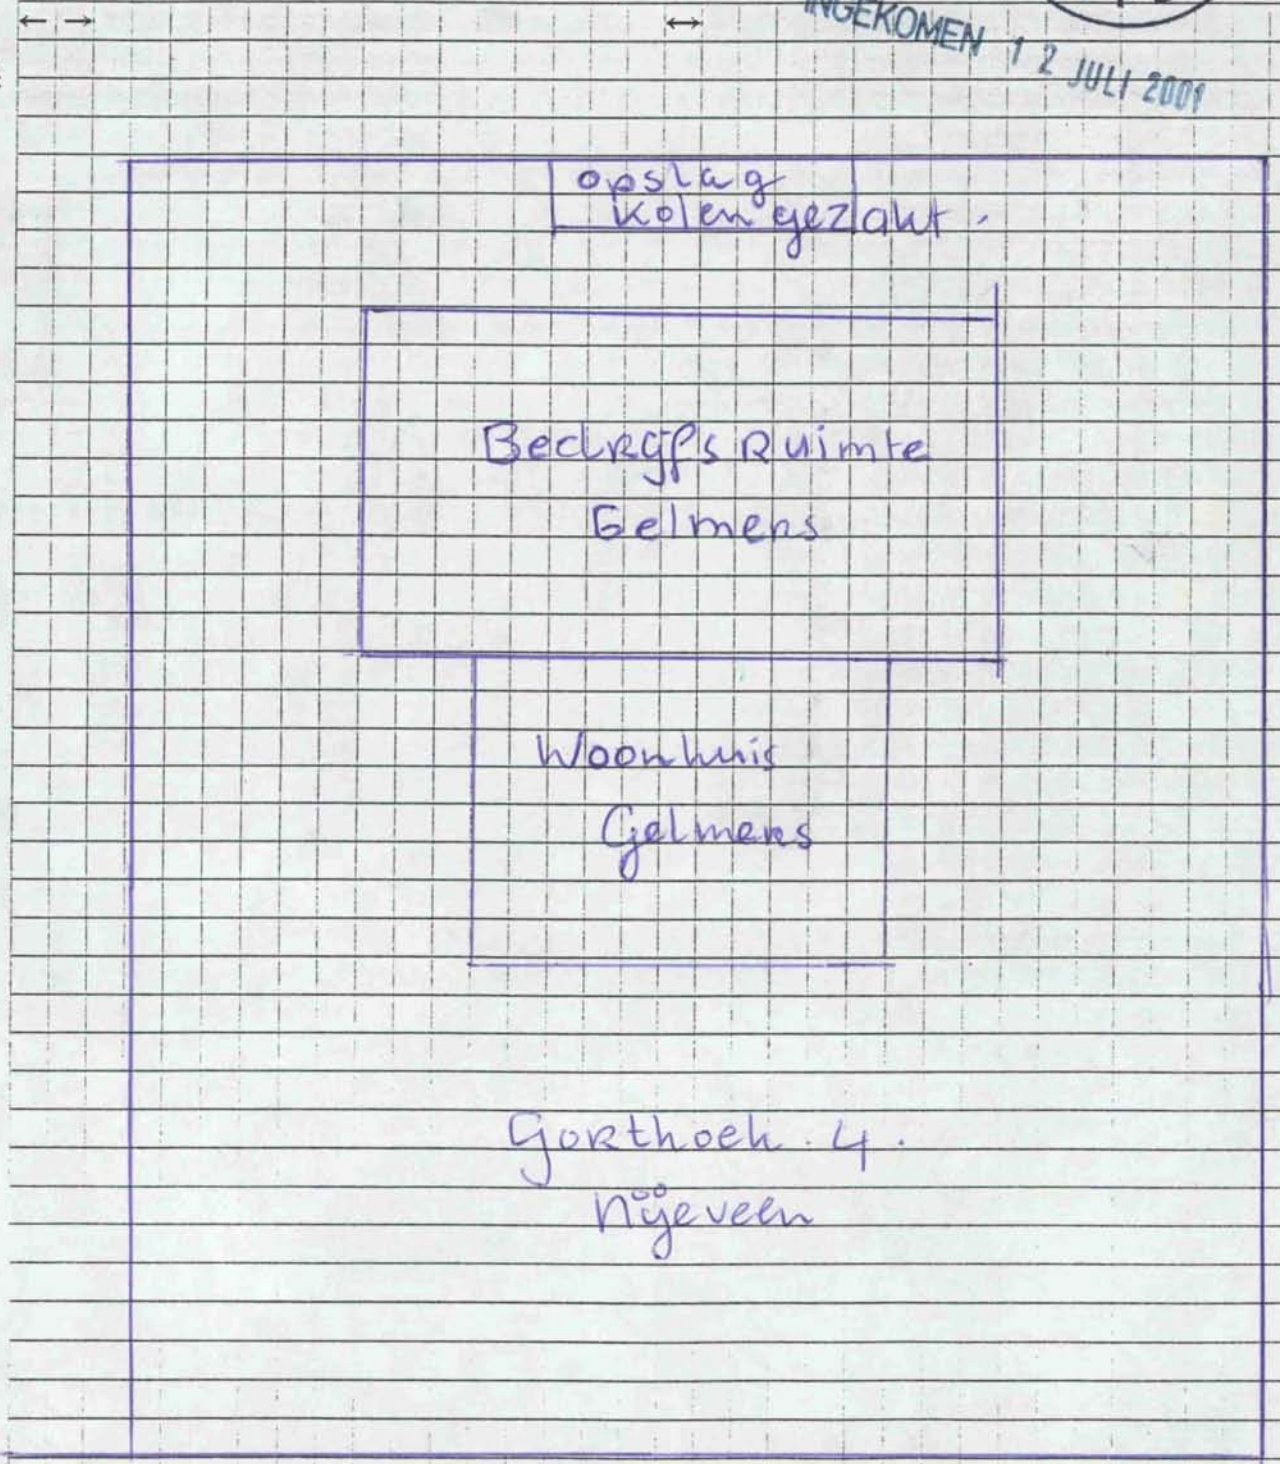 INGEKOMEN 12 JULI 2001
opslag
kolen gezakt.
Bedrijfs Ruimte
Gelmers
Woonhuis
Gelmers
Gorthoek 4.
Nijeveen